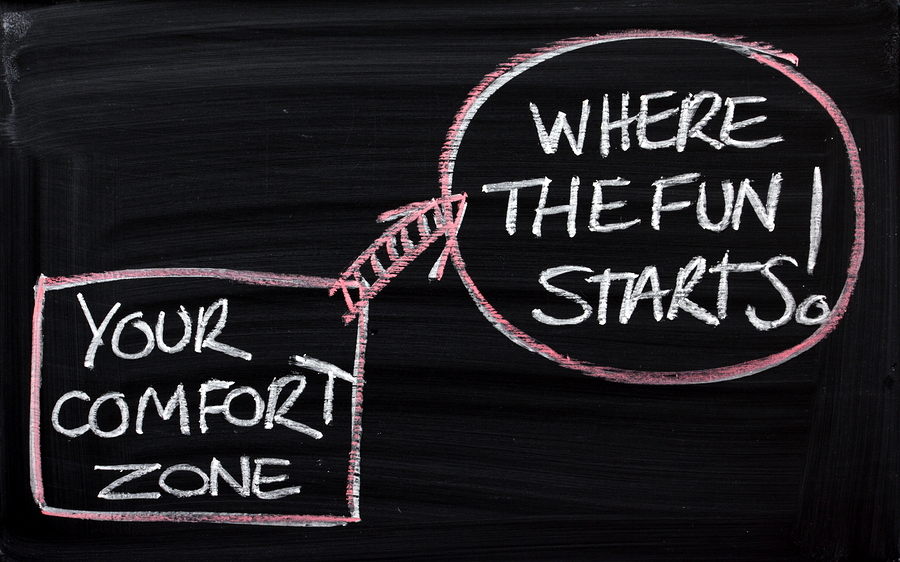 YOUR
COMFORT
ZONE
WHERE
THE FUN
STARTS!